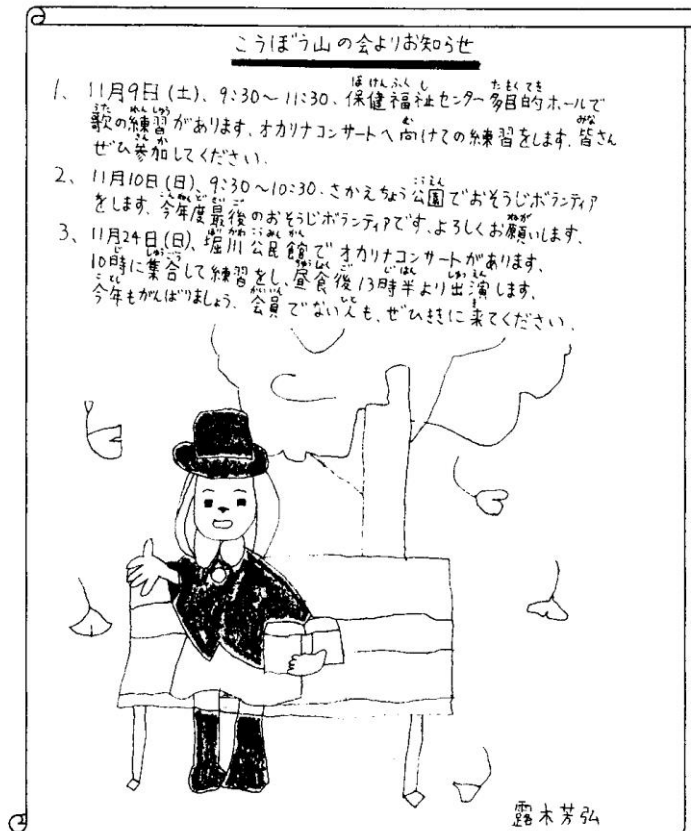 こうぼう山の会よりお知らせ
1、11月9日(土)、9:30～11:30、保健福祉センター多目的ホールで
歌の練習があります。オカリナコンサートへ向けての練習をします。皆さん
ぜひ参加してください。
2、11月10日(日)、9:30～10:30、さかえちょう公園でおそうじボランティア
をします。今年度最後のおそうじボランティアです。よろしくお願いします。
3、11月24日(日)、堀川公民館でオカリナコンサートがあります。
10時に集合して練習をし、昼食後13時半より出演します。
今年もがんばりましょう。会員でない人も、ぜひききに来てください。
露木芳弘